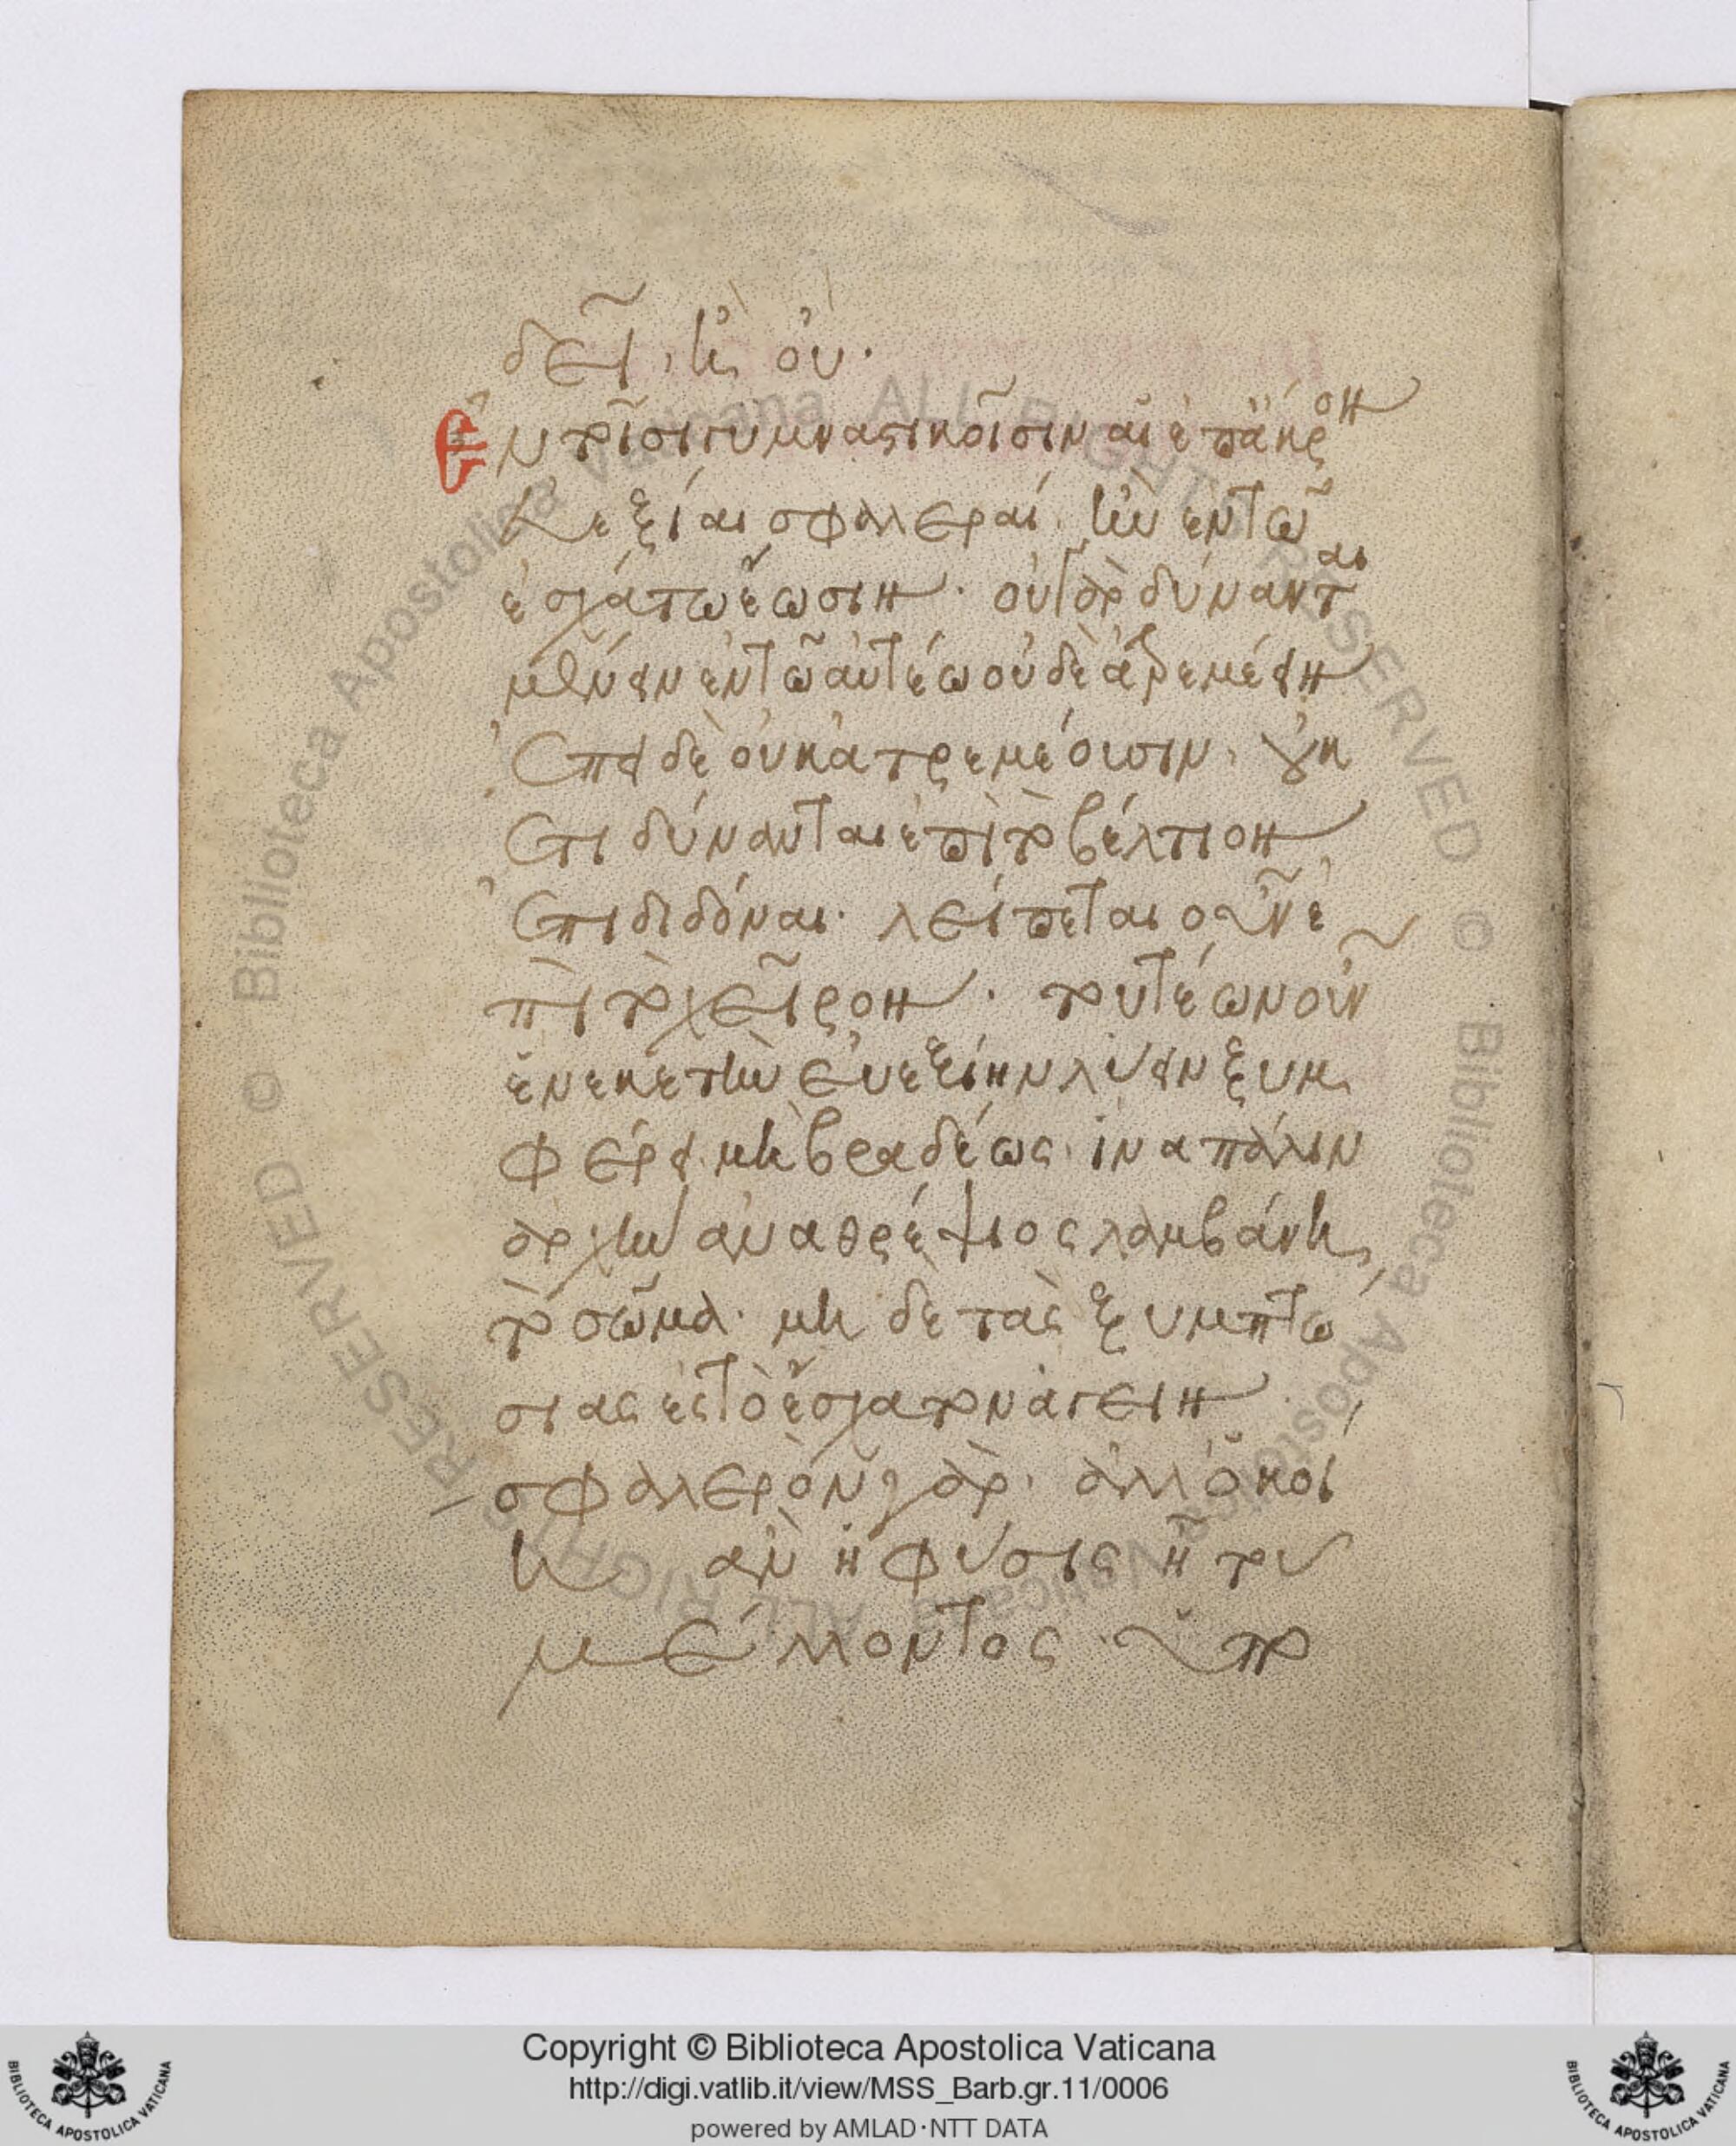 δεῖ, ἢ οὔ.
Ἐν τοῖσι γυμναστικοῖσιν αἱ ἐπ' ἄκρον
εὐεξίαι σφαλεραί. ἢν ἐν τῶ
ἐσχάτω ἔωσιν. οὐ γὰρ δύνανται
μένειν ἐν τῶ αὐτέω οὐδὲ ἀτρεμέειν
ἐπεὶ δὲ οὐκ ἀτρεμέουσιν, οὐκ
ἔτι δύνανται ἐπὶ τὸ βέλτιον
ἐπιδιδόναι. λείπεται οὖν ἐ
πὶ τὸ χεῖρον. τουτέων οὖν
ἕνεκε τὴν εὐεξίην λύειν ξυμ
φέρει μὴ βραδέως. ἵνα πάλιν
ἀρχὴν ἀναθρέψιος λαμβάνη
τὸ σῶμα. μὴ δὲ τὰς ξυμπτώ
σιας ἐς τὸ ἔσχατον ἄγειν
σφαλερὸν γὰρ. ἀλλ' ὁκοί
η ἂν ἡ φύσις ἦ του
μέλλοντος ὑπο
Copyright © Biblioteca Apostolica Vaticana
http://digi.vatlib.it/view/MSS_Barb.gr.11/0006
powered by AMLAD·NTT DATA